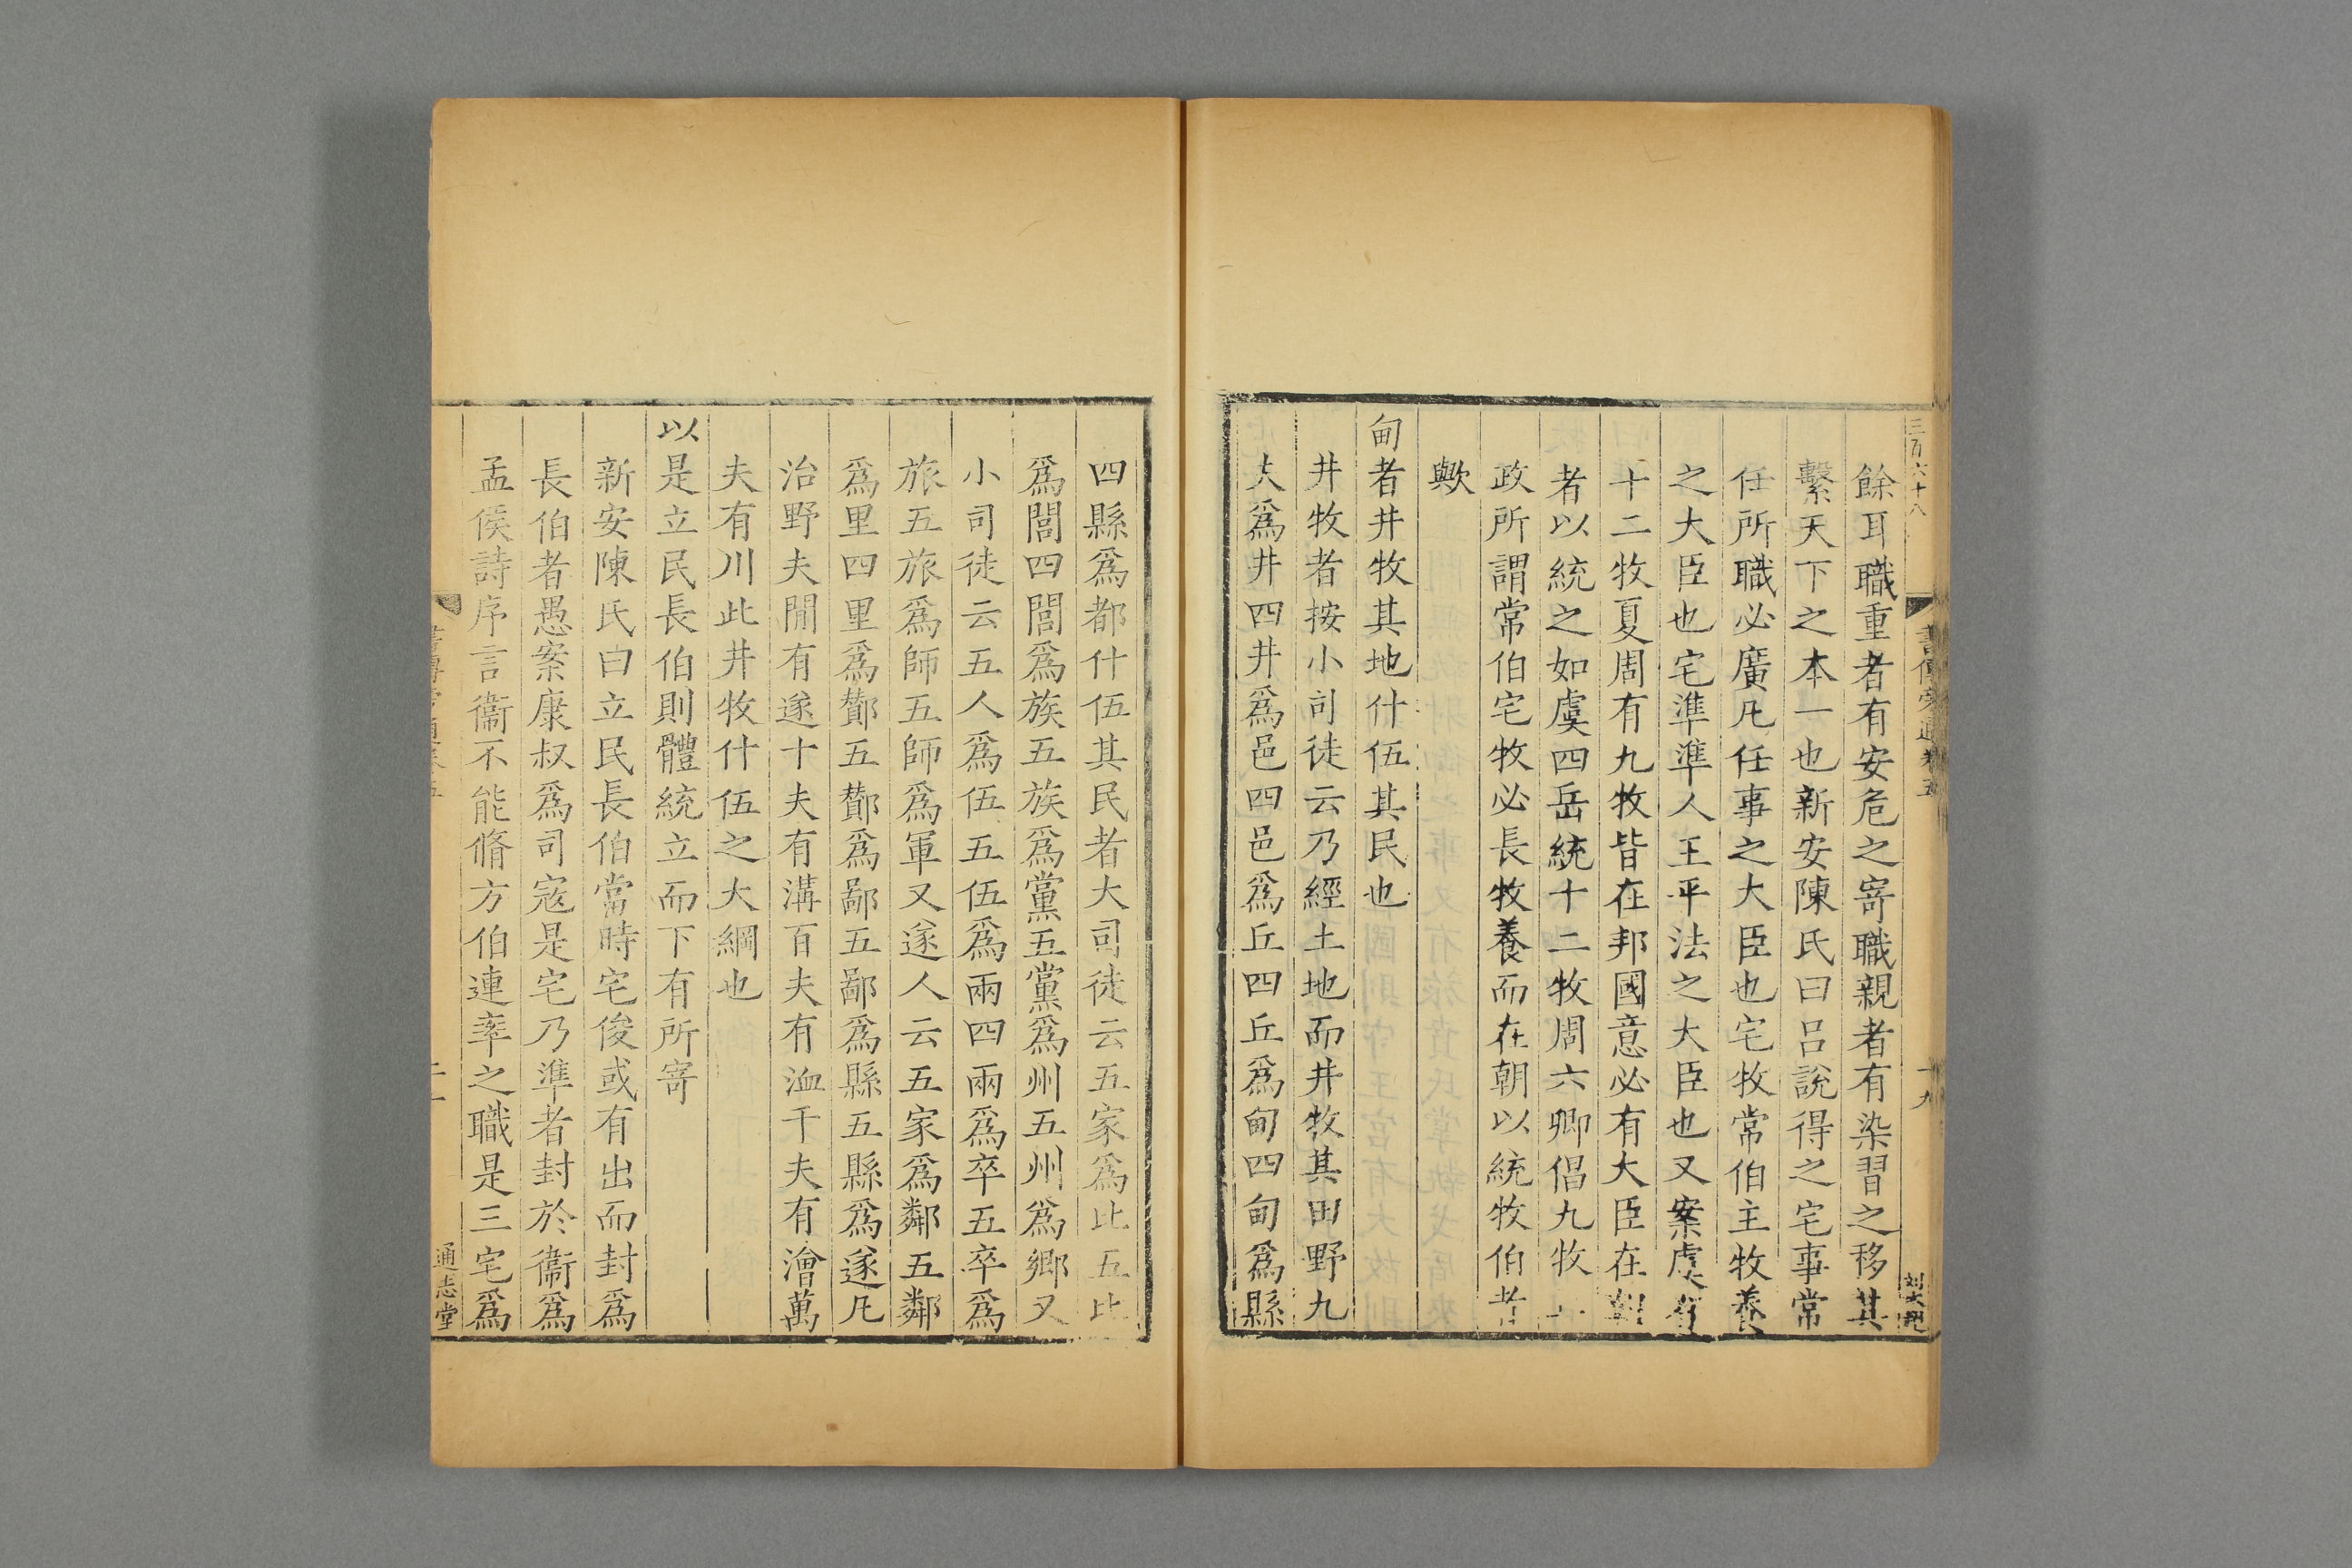 三百六十八
餘耳職重者有安危之寄職親者有染習之移其
繫天下之本一也新安陳氏曰吕說得之宅事常
任所職必廣凡任事之大臣也宅牧常伯主牧養
之大臣也宅準準人王平法之大臣也又案虞有
十二牧夏周有九牧皆在邦國意必有大臣在朝
者以統之如虞四岳統十二牧周六卿倡九牧
政所謂常伯宅牧必長牧養而在朝以統牧伯者
歟
甸者井牧其地什伍其民也
井牧者按小司徒云乃經土地而井牧其田野九
夫爲井四井爲邑四邑爲丘四丘爲甸四甸爲縣
書傳旁通卷五
十九
四縣爲都什伍其民者大司徒云五家爲比五比
爲閭四閭爲族五族爲黨五黨爲州五州爲鄉又
小司徒云五人爲伍五伍爲兩四兩爲卒五卒爲
旅五旅爲師五師爲軍又遂人云五家爲鄰五鄰
爲里四里爲酇五酇爲鄙五鄙爲縣五縣爲遂凡
治野夫閒有遂十夫有溝百夫有洫千夫有澮萬
夫有川此井牧什伍之大綱也
以是立民長伯則體統立而下有所寄
新安陳氏曰立民長伯當時宅俊或有出而封爲
長伯者愚案康叔爲司寇是宅乃準者封於衞爲
孟侯詩序言衞不能脩方伯連率之職是三宅爲
通志堂